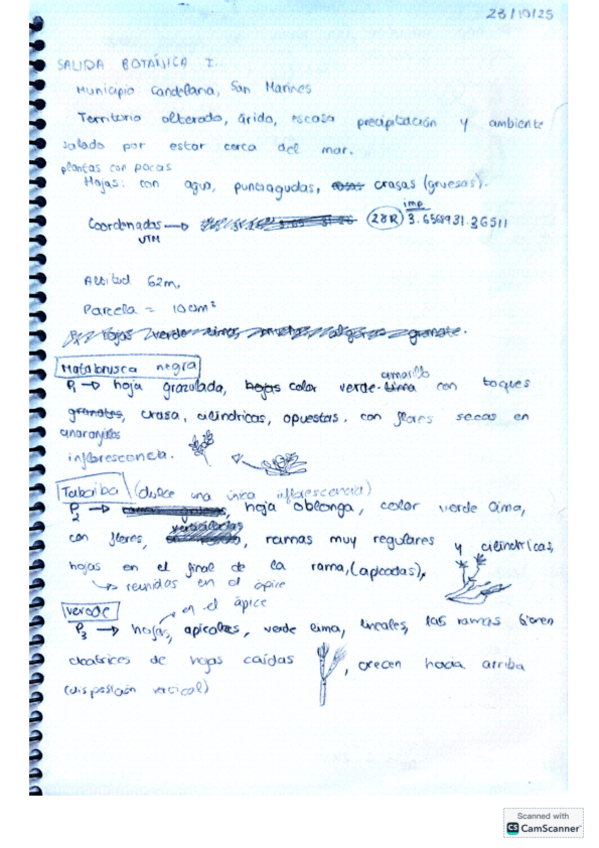 23/10/25
SALIDA BOTÁNICA I.
Municipio Candelaria, San Marines
Territorio alterado, árido, escasa precipitación y ambiente
salado por estar cerca del mar.
plantas con pocas
Hojas: con agua, puntiagudas, crasas (gruesas).
imp.
Coordenadas → 28R
UTM
Altitud 62m.
Parcela = 100m²
Matabrusca negra
amarillo
P1 → hoja grazulada, color verde con toques
granates, crasa, cilíndricas, opuestas. con flores secas en
anaranjados
inflorescencia.
Tabaiba (dulce una única inflorescencia)
P2 → hoja oblonga, color verde lima,
verticiladas
con flores, ramas muy regulares y cilíndricas,
hojas en el final de la rama, (apicadas),
→ reunidas en el ápice
verode → en el ápice
P3 → hojas, apicales, verde lima, lineales, las ramas tienen
cicatrices de hojas caídas, crecen hacia arriba
(disposición vertical)
Scanned with
CS CamScanner